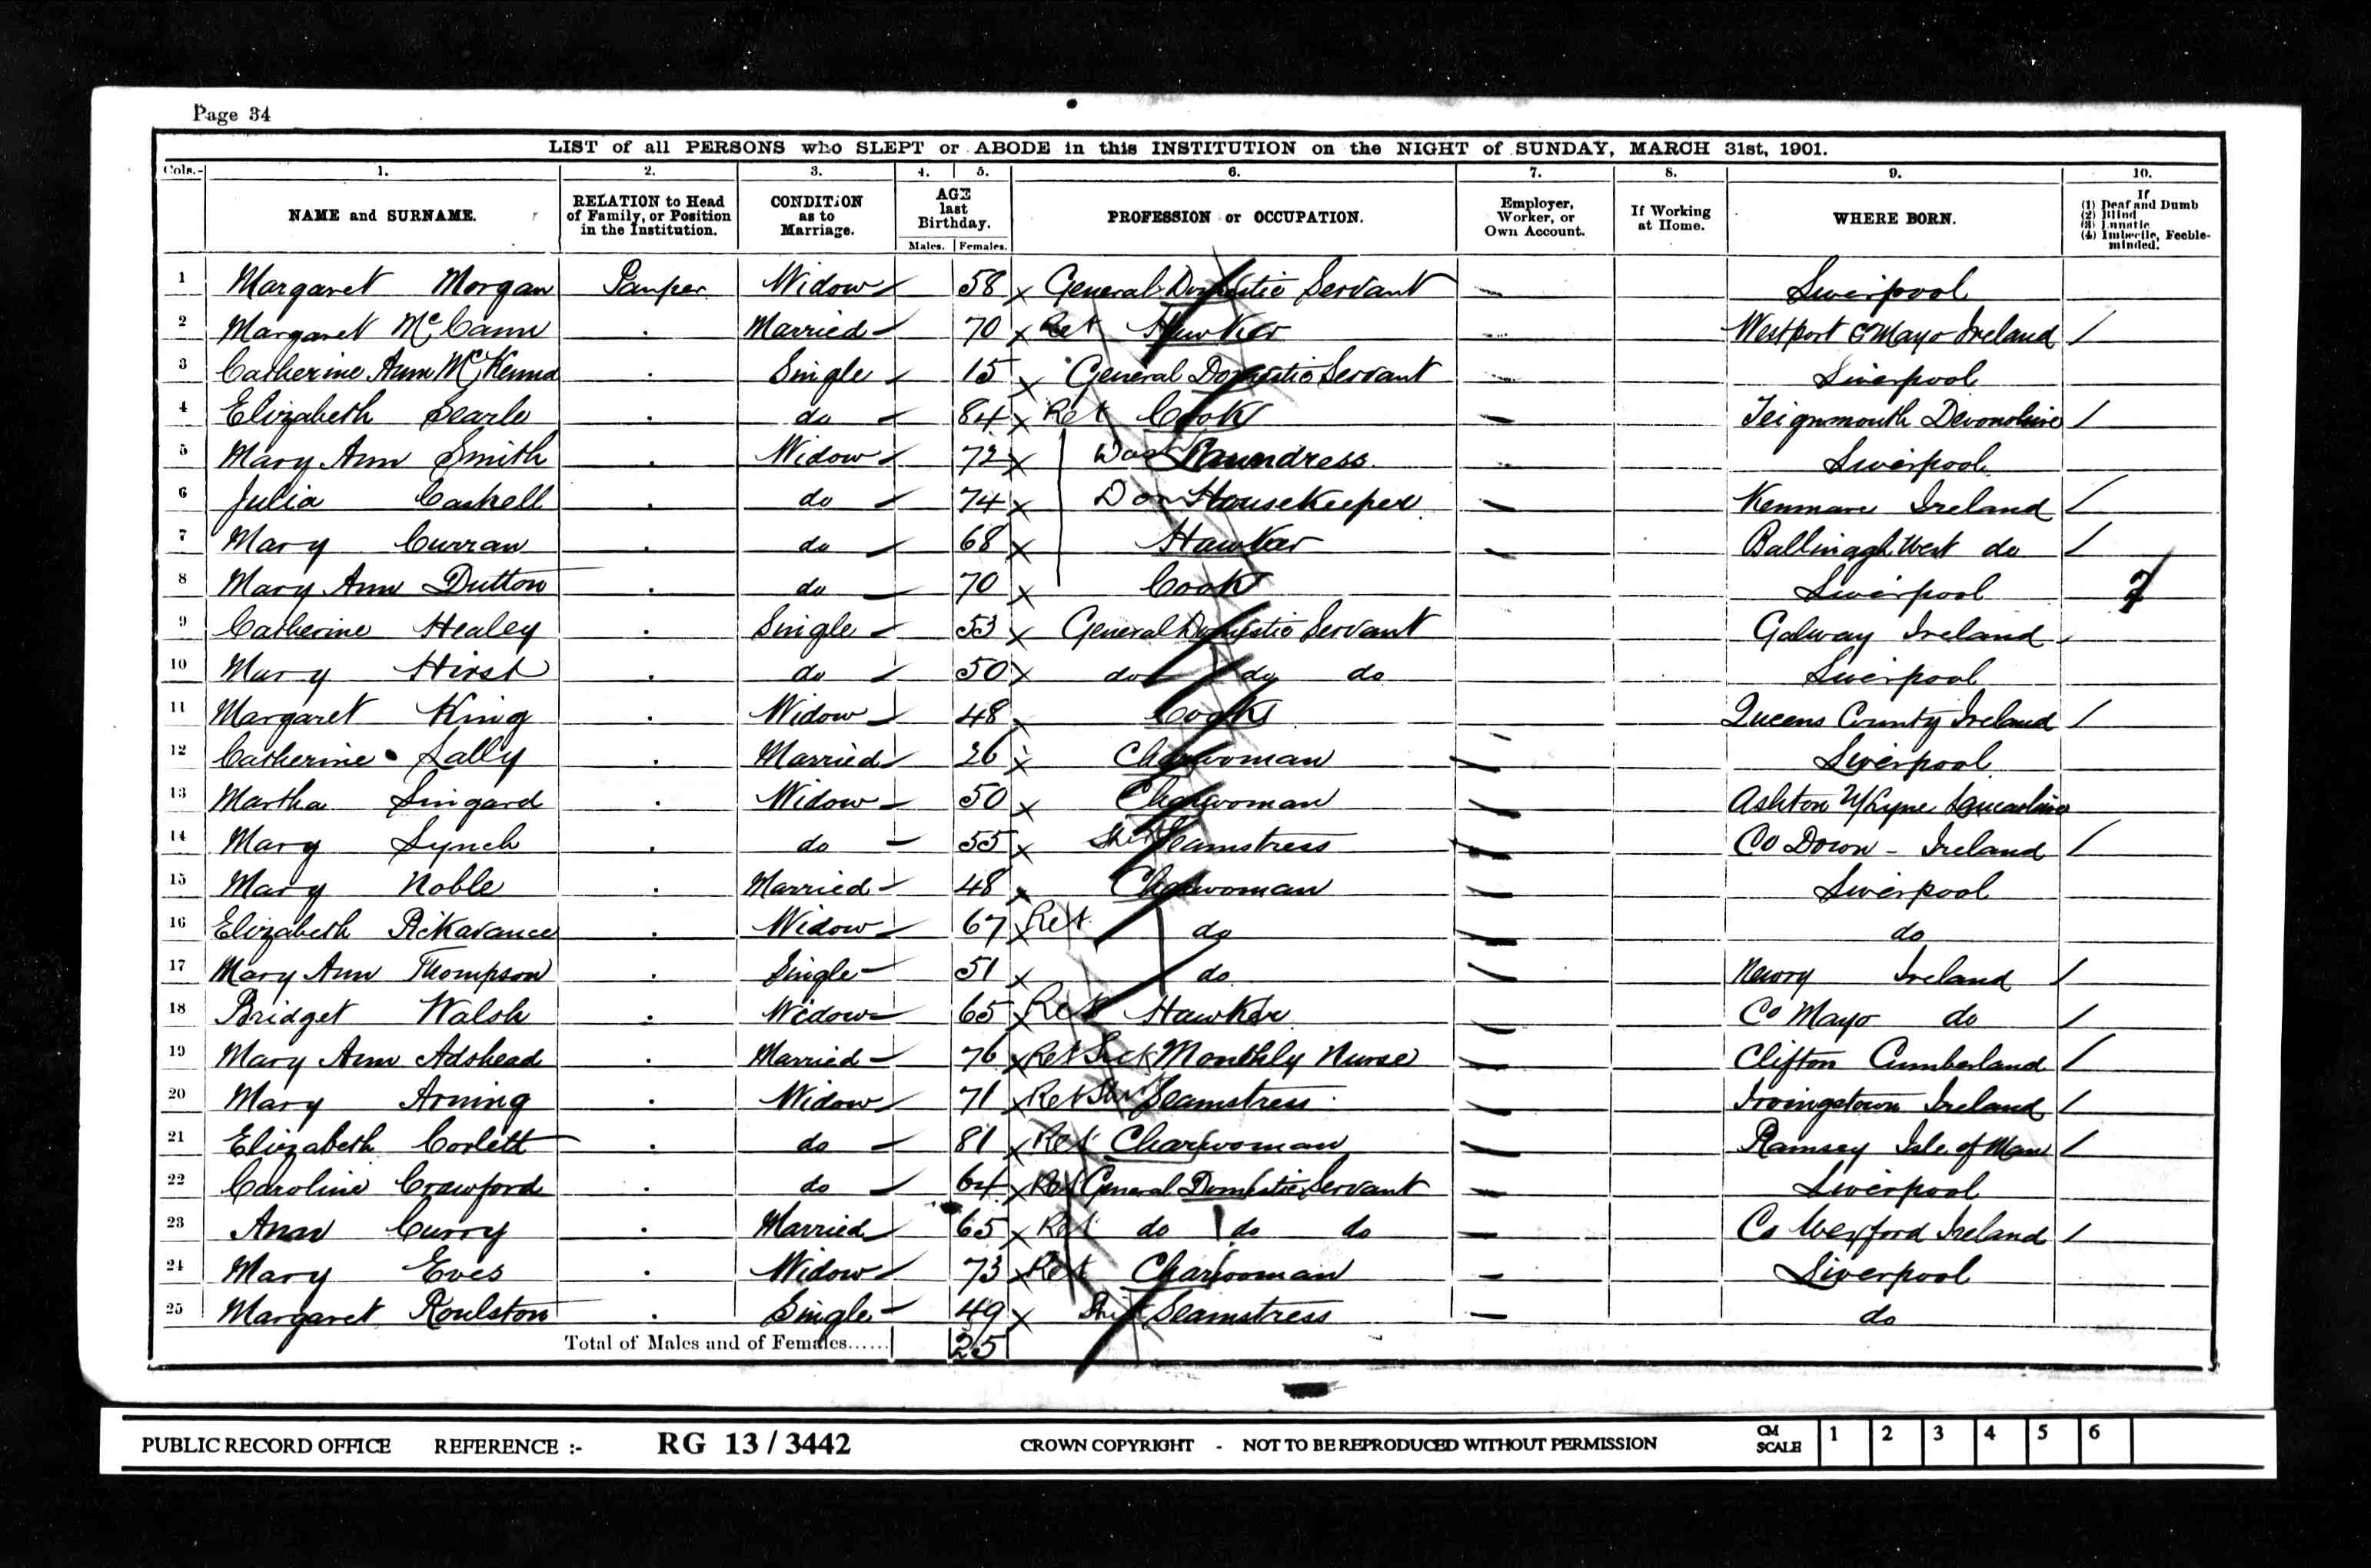 Page 34
LIST of all PERSONS who SLEPT or ABODE in this INSTITUTION on the NIGHT of SUNDAY, MARCH 31st, 1901.
Cols.- 1. 2. 3. 4. 5. 6. 7. 8. 9. 10.
NAME and SURNAME. RELATION to Head of Family, or Position in the Institution. CONDITION as to Marriage. AGE last Birthday. Males. Females. PROFESSION or OCCUPATION. Employer, Worker, or Own Account. If Working at Home. WHERE BORN. If (1) Deaf and Dumb (2) Blind (3) Lunatic (4) Imbecile, Feeble-minded.
1 Margaret Morgan Pauper Widow 58 General Domestic Servant Liverpool
2 Margaret McCann Married 70 Ret Hawker Westport Co Mayo Ireland
3 Catherine Ann McKenna Single 15 General Domestic Servant Liverpool
4 Elizabeth Searle do 84 Ret Cook Teignmouth Devonshire
5 Mary Ann Smith Widow 72 Laundress Liverpool
6 Julia Cashell do 74 Dom Housekeeper Kenmare Ireland
7 Mary Curran do 68 Hawker Ballinagh West do
8 Mary Ann Dutton do 70 Cook Liverpool
9 Catherine Healey Single 53 General Domestic Servant Galway Ireland
10 Mary Hirst do 50 do do do Liverpool
11 Margaret King Widow 48 Cook Queens County Ireland
12 Catherine Lally Married 26 Charwoman Liverpool
13 Martha Lingard Widow 50 Charwoman Ashton U/Lyne Lancashire
14 Mary Lynch do 55 Seamstress Co Down - Ireland
15 Mary Noble Married 48 Charwoman Liverpool
16 Elizabeth Pickavance Widow 67 Ret do do
17 Mary Ann Thompson Single 51 do Newry Ireland
18 Bridget Walsh Widow 65 Ret Hawker Co Mayo do
19 Mary Ann Adshead Married 76 Ret Sick Monthly Nurse Clifton Cumberland
20 Mary Arning Widow 71 Ret Seamstress Irvingstown Ireland
21 Elizabeth Corlett do 81 Ret Charwoman Ramsey Isle of Man
22 Caroline Crawford do 64 Ret General Domestic Servant Liverpool
23 Ann Curry Married 65 Ret do do do Co Wexford Ireland
24 Mary Eves Widow 73 Ret Charwoman Liverpool
25 Margaret Roulston Single 49 Seamstress do
Total of Males and of Females...... 25
PUBLIC RECORD OFFICE REFERENCE :- RG 13 / 3442 CROWN COPYRIGHT - NOT TO BE REPRODUCED WITHOUT PERMISSION CM SCALE 1 2 3 4 5 6